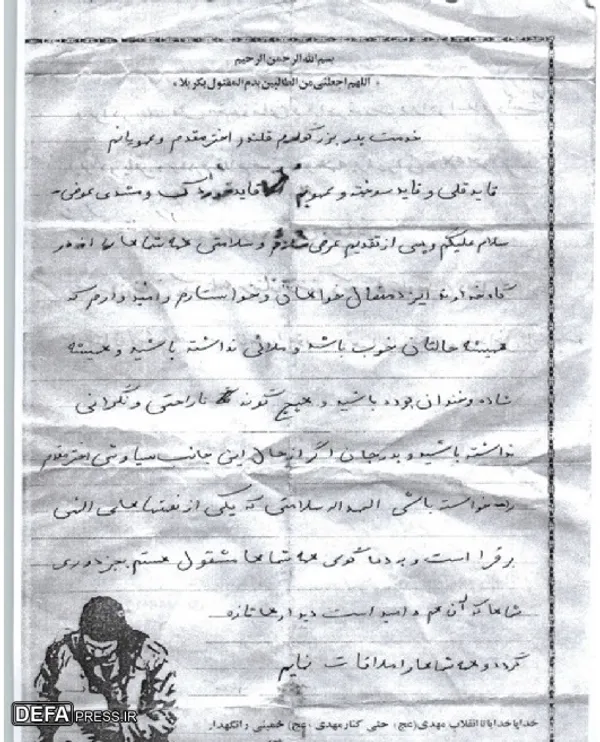 بسم الله الرحمن الرحیم
«اللهم اجعلنی من الطالبین بدم المقتول بکربلا»
خدمت پدر بزرگوارم قلندر اخترمقدم و عمویانم
قاید قلی و قاید سوخته و عمویم قاید و مشدی عوض -
سلام علیکم و پس از تقدیم عرض سلام و سلامتی همه شماها را از در
گاه خداوند ایزد متعال خواهان و خواستارم و امیدوارم که
همیشه حالتان خوب باشد و ملالی نداشته باشید و همیشه
شاد و خندان بوده باشید و هیچ گونه ناراحتی و نگرانی
نداشته باشید و پدر جان اگر از حال این جانب سیاوش اخترمقدم
را خواسته باشی الحمداله سلامتی که یکی از نعمتهای الهی
برقرا است و به دعا گوی همه شماها مشقول هستم بجز دوری
شماها که آن هم امید است دیدارها تازه
گردد و همه شماها را ملاقات نمایم
خدایا خدایا تا انقلاب مهدی (عج)، حتی کنار مهدی (عج) خمینی را نگهدار
DEFAPRESS.IR